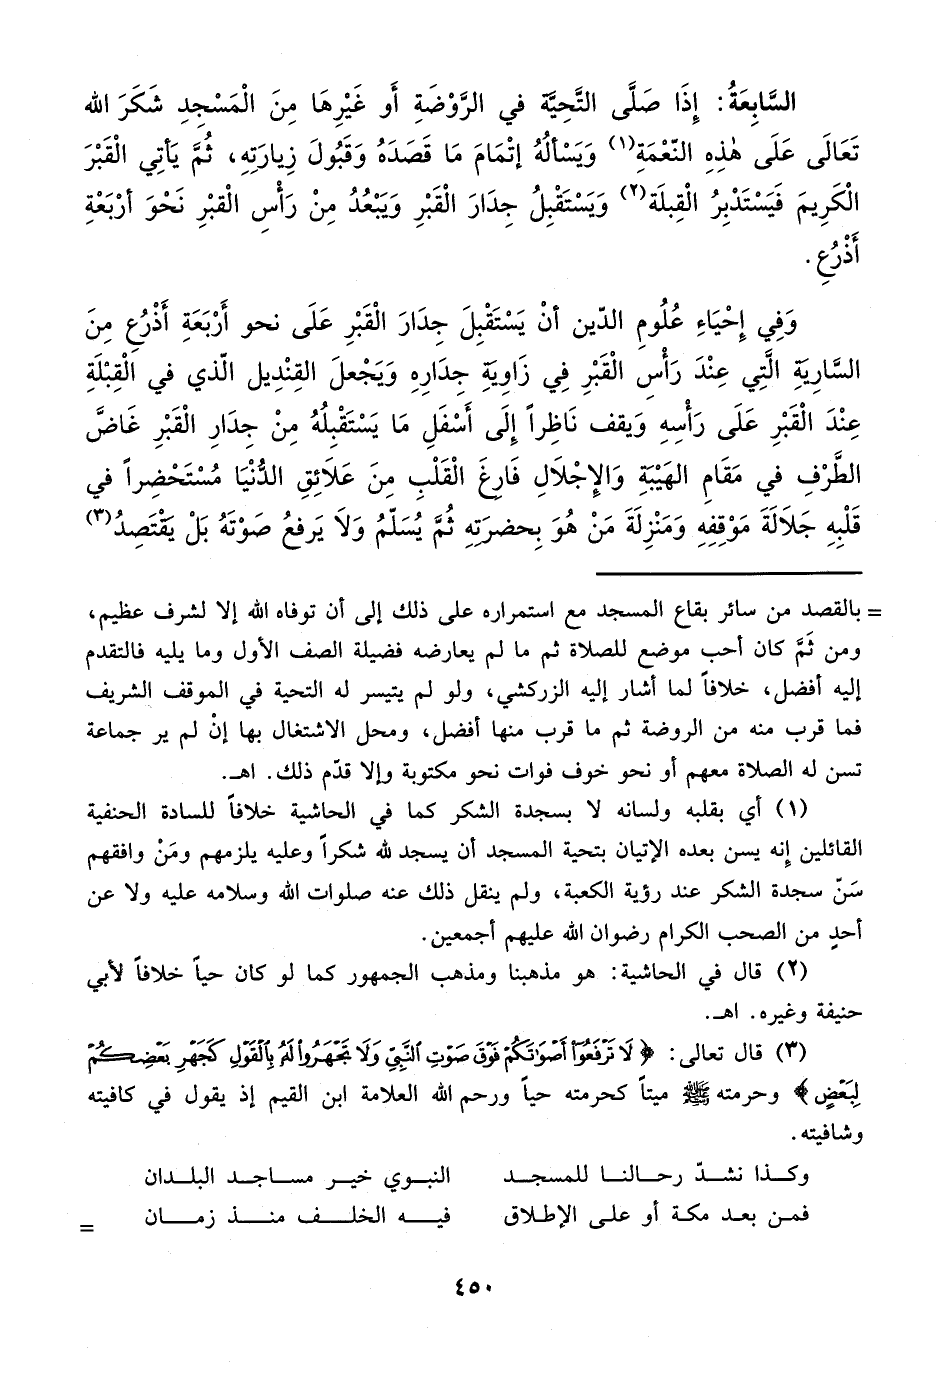 السَّابِعَةُ: إِذَا صَلَّى التَّحِيَّة في الرَّوْضَةِ أَو غَيْرِهَا مِنَ الْمَسْجِدِ شَكَرَ الله
تَعَالَى عَلَى هٰذِهِ النّعْمَةِ(١) وَيَسْأَلُهُ إِتْمَامَ مَا قَصَدَهُ وَقَبُولَ زِيارَتِهِ، ثُمَّ يَأتِي الْقَبْرَ
الْكَرِيمَ فَيَسْتَدْبِرُ الْقِبلَة(٢) وَيَسْتَقْبِلُ جِدَارَ الْقَبْرِ وَيَبْعُدُ مِنْ رَأْسِ القبْرِ نَحْوَ أرْبَعَةِ
أَذْرُعٍ.
وَفِي إِحْيَاءِ عُلُومِ الدّين أنْ يَسْتَقْبِلَ جِدَارَ الْقَبْرِ عَلَى نحو أَرْبَعَةِ أَذْرُعٍ مِنَ
السَّارِيَةِ الَّتِي عِنْدَ رَأْسِ الْقَبْرِ فِي زَاوِيَةِ جِدَارِهِ وَيَجْعلَ القِنْدِيل الّذي في الْقِبْلَةِ
عِنْدَ الْقَبْرِ عَلَى رَأْسِهِ وَيقف نَاظِراً إِلَى أَسْفَلِ مَا يَسْتَقْبِلُهُ مِنْ جِدَارِ الْقَبْرِ غَاضَّ
الطَّرْفِ في مَقَامِ الهَيْبَةِ وَالإِجْلَالِ فَارِغَ الْقَلْبِ مِنَ عَلَائِقِ الدُّنْيَا مُسْتَحْضِراً في
قَلْبِهِ جَلَالَةَ مَوْقِفِهِ وَمَنْزِلَةَ مَنْ هُوَ بِحضرَتِهِ ثُمَّ يُسَلّمُ وَلَا يَرفعُ صَوْتَهُ بَلْ يَقْتَصِدُ(٣)
= بالقصد من سائر بقاع المسجد مع استمراره على ذلك إلى أن توفاه الله إلا لشرف عظيم،
ومن ثَمَّ كان أحب موضع للصلاة ثم ما لم يعارضه فضيلة الصف الأول وما يليه فالتقدم
إليه أفضل، خلافاً لما أشار إليه الزركشي، ولو لم يتيسر له التحية في الموقف الشريف
فما قرب منه من الروضة ثم ما قرب منها أفضل، ومحل الاشتغال بها إنْ لم ير جماعة
تسن له الصلاة معهم أو نحو خوف فوات نحو مكتوبة وإلا قدّم ذلك. اهـ.
(١) أي بقلبه ولسانه لا بسجدة الشكر كما في الحاشية خلافاً للسادة الحنفية
القائلين إنه يسن بعده الإتيان بتحية المسجد أن يسجد لله شكراً وعليه يلزمهم ومَنْ وافقهم
سَنّ سجدة الشكر عند رؤية الكعبة، ولم ينقل ذلك عنه صلوات الله وسلامه عليه ولا عن
أحدٍ من الصحب الكرام رضوان الله عليهم أجمعين.
(٢) قال في الحاشية: هو مذهبنا ومذهب الجمهور كما لو كان حياً خلافاً لأبي
حنيفة وغيره. اهـ.
(٣) قال تعالى: ﴿لَا تَرْفَعُوٓا۟ أَصْوَٰتَكُمْ فَوْقَ صَوْتِ ٱلنَّبِيِّ وَلَا تَجْهَرُوا۟ لَهُۥ بِٱلْقَوْلِ كَجَهْرِ بَعْضِكُمْ
لِبَعْضٍ﴾ وحرمته ﷺ ميتاً كحرمته حياً ورحم الله العلامة ابن القيم إذ يقول في كافيته
وشافيته.
وكـذا نشـدّ رحـالنـا للمسجـد النبـوي خيـر مسـاجـد البلـدان
فمـن بعـد مكـة أو علـى الإطـلاق فيـه الخلـف منـذ زمـان
=
٤٥٠